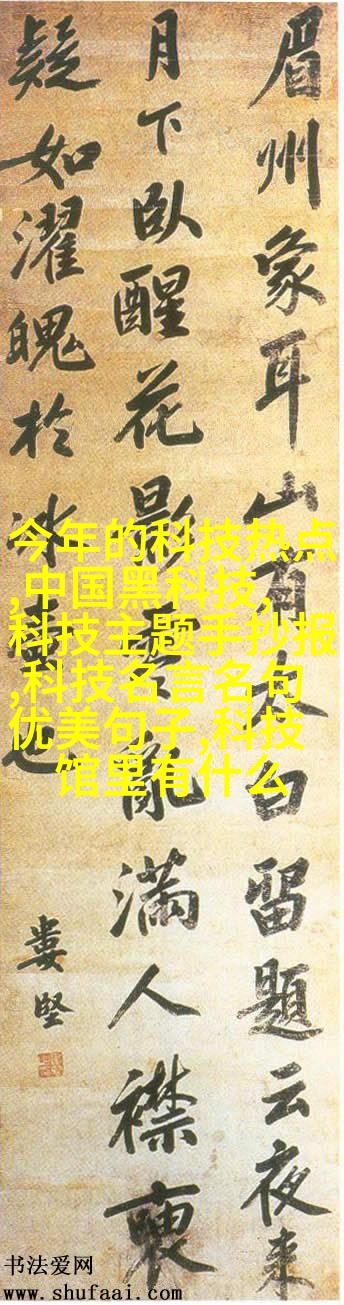 眉州象耳山有太白留題云夜來
月下臥醒花影亂滿人襟
疑如濯魄於冰也
婁堅
今年的科技热点
,中国黑科技,
科技主题手抄报
,科技名言名句
优美句子,科技
馆里有什么
书法爱网
www.shufaai.com